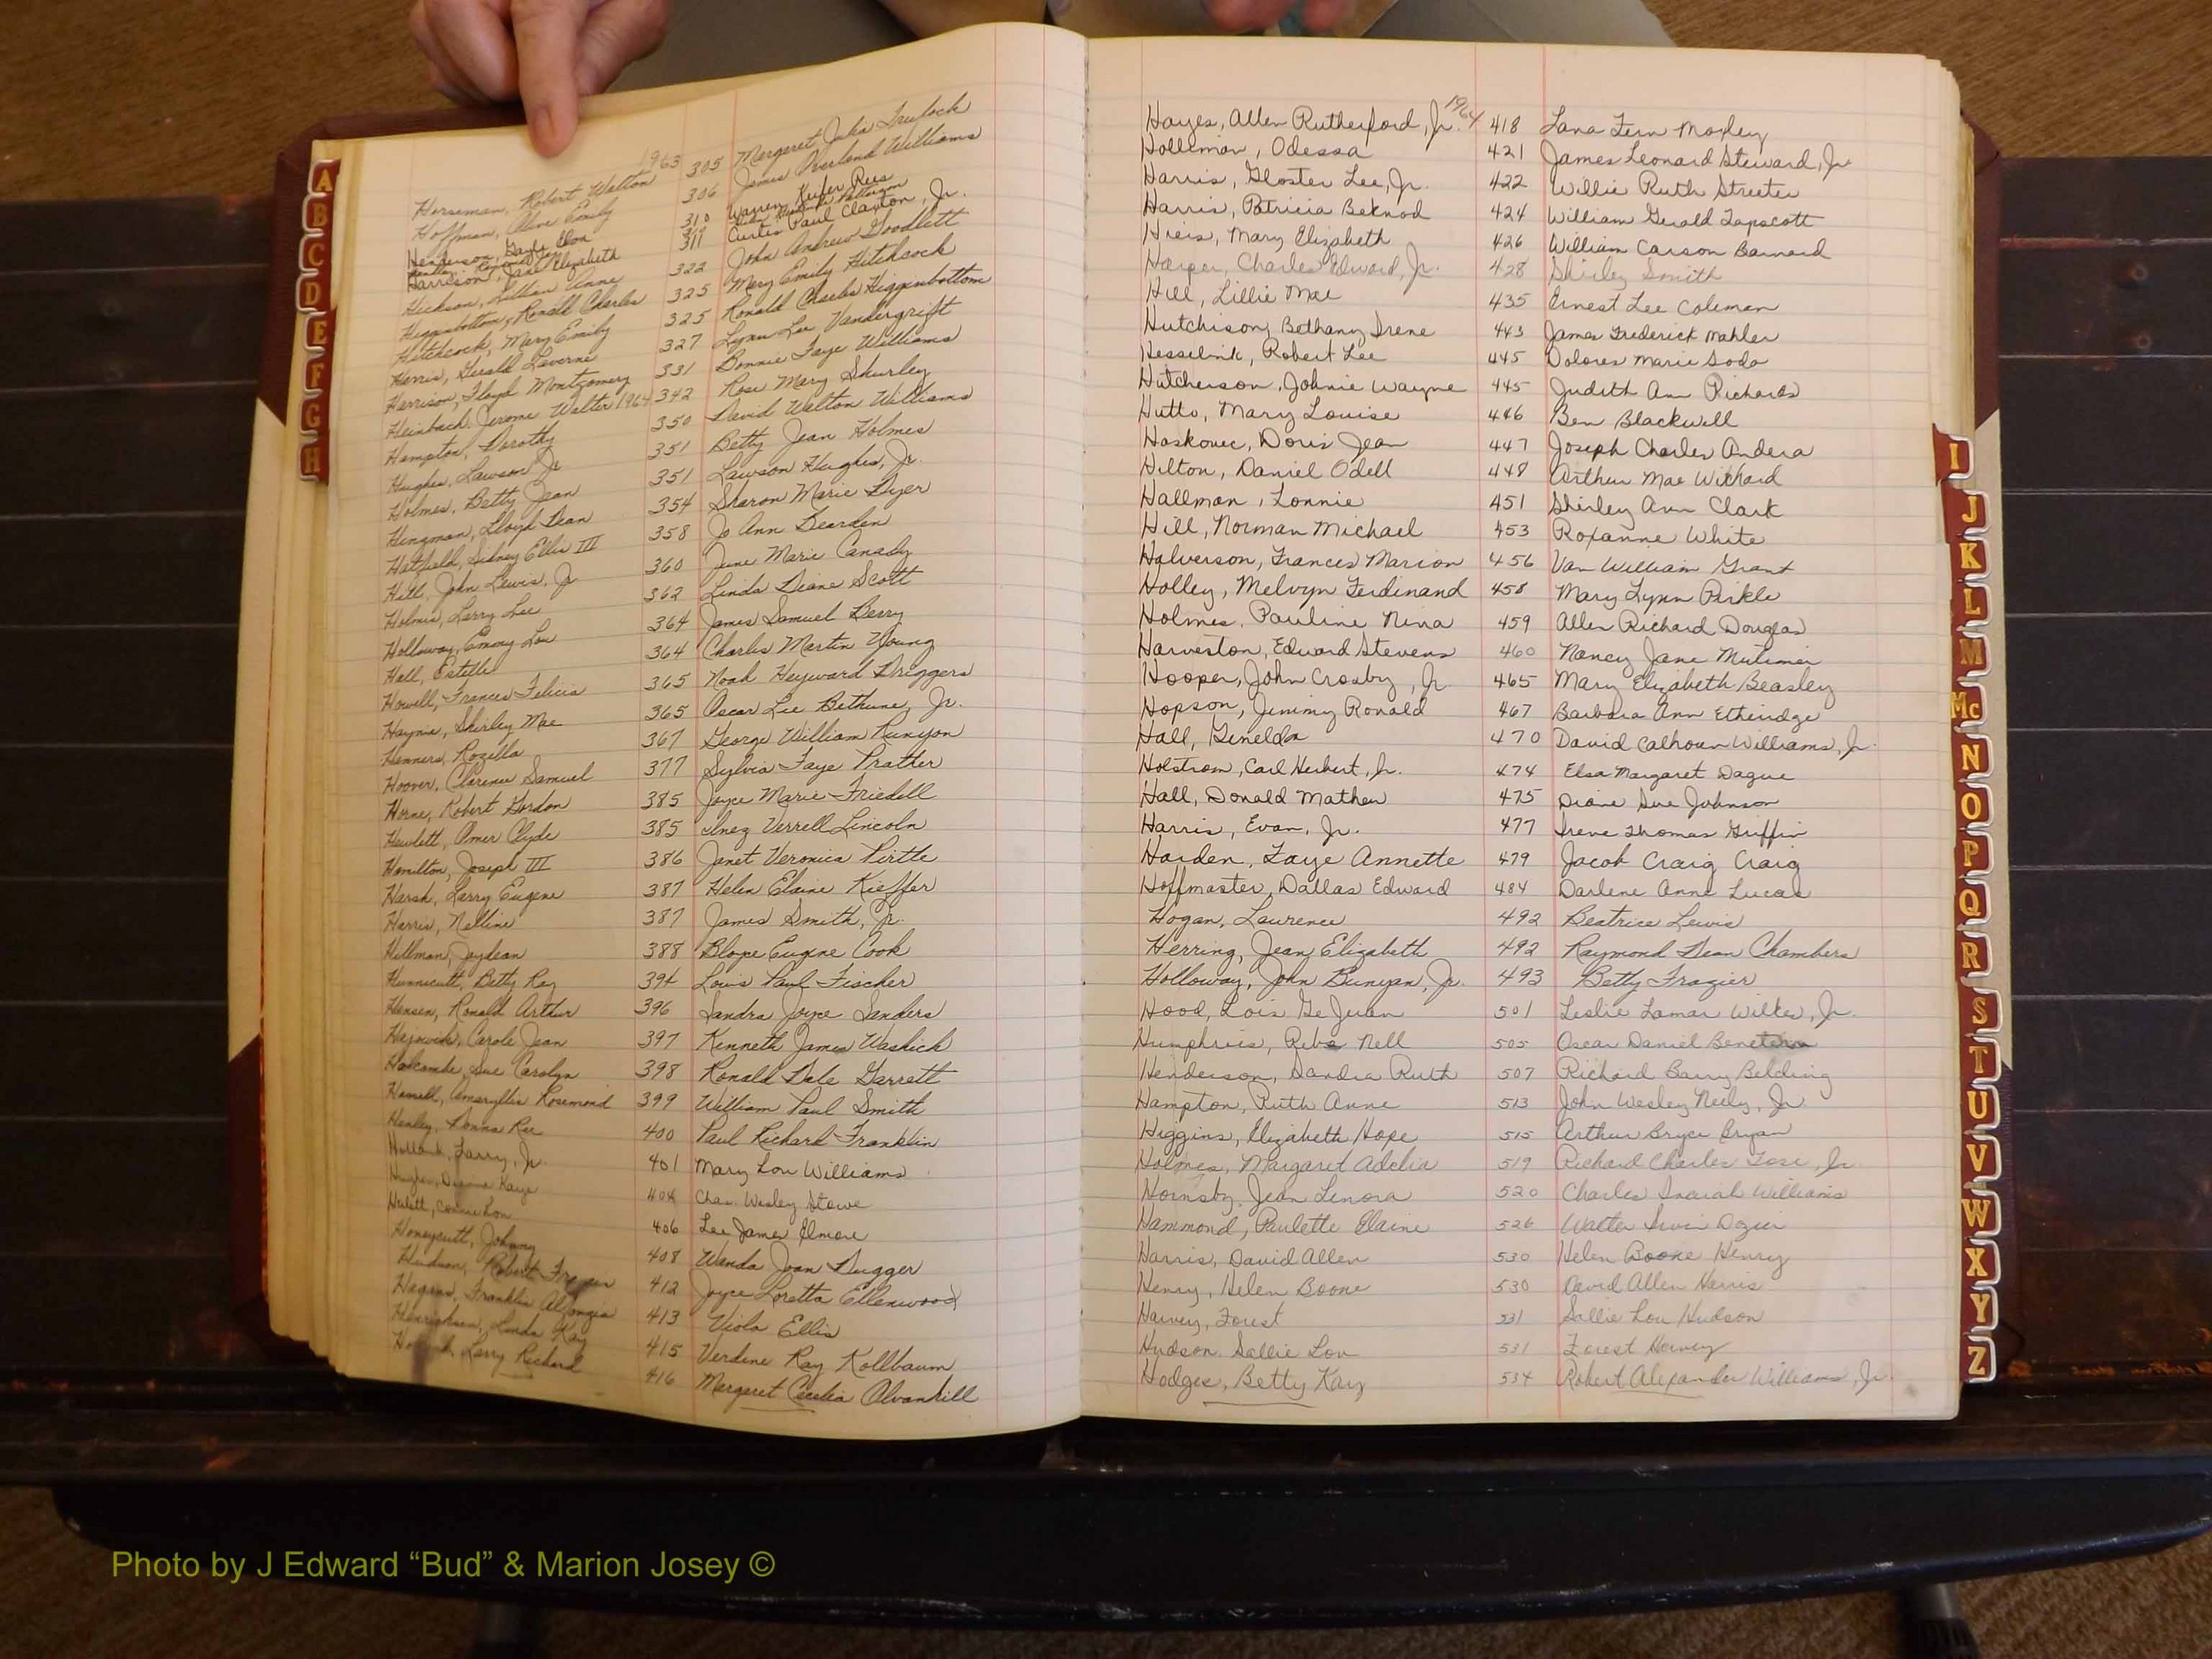 1963
Horseman, Robert Walton 305 Margaret Julia Trulock
Hoffman, Olive Emily 306 James Overland Williams
Henderson, Gayle Elon 310 Warren Keifer Rees
Harrison, Jane Elizabeth 311 Curtis Paul Claxton, Jr.
Hickson, Lillian Anne 322 John Andrew Goodlett
Higginbottom, Ronald Charles 325 Mary Emily Hitchcock
Hitchcock, Mary Emily 325 Ronald Charles Higginbottom
Harris, Gerald Laverne 327 Lynn Lee Vandergrift
Harrison, Floyd Montgomery 331 Bonnie Faye Williams
Heinbach, Jerome Walter 1964 342 Rose Mary Shurley
Hampton, Dorothy 350 David Walton Williams
Hughes, Lawson Jr 351 Betty Jean Holmes
Holmes, Betty Jean 351 Lawson Hughes, Jr.
Hingman, Lloyd Dean 354 Sharon Marie Dyer
Hatfield, Sidney Ellis III 358 Jo Ann Bearden
Hill, John Lewis, Jr 360 June Marie Canady
Holmes, Larry Lee 362 Linda Diane Scott
Holloway, Emmy Lou 364 James Samuel Berry
Hall, Estelle 364 Charles Martin Young
Howell, Frances Felicia 365 Noah Heyward Driggers
Haynie, Shirley Mae 365 Oscar Lee Bethune, Jr.
Henners, Rozella 367 George William Runyon
Hoover, Clarence Samuel 377 Sylvia Faye Prather
Horne, Robert Gordon 385 Joyce Marie Friedell
Hewlett, Omer Clyde 385 Inez Verrell Lincoln
Hamilton, Joseph III 386 Janet Veronica Pirtle
Harsh, Larry Eugene 387 Helen Elaine Kieffer
Harris, Nelline 387 James Smith, Jr.
Hillman, Joydean 388 Eugene Cook
Hunnicutt, Betty Ray 394 Louis Paul Fischer
Hensen, Ronald Arthur 396 Sandra Joyce Sanders
Carole Jean 397 Kenneth James Washick
Holcombe, Sue Carolyn 398 Ronald Dale Garrett
Harrell, Amaryllis Rosemond 399 William Paul Smith
Henley, Donna Rae 400 Paul Richard Franklin
Harry, Jr. 401 Mary Lou Williams
Hughes, Dianne Kaye 404 Chas. Wesley Stowe
Hulett, Connie Lou 406 Lee James Elmore
Honeycutt, Johnny 408 Wanda Joan Dugger
Hudson, Robert 412 Joyce Loretta Ellenwood
Hagans, Franklin Alfonzia 413 Viola Ellis
Henrichsen, Linda Kay 415 Verdene Ray Kollbaum
Larry Richard 416 Margaret Cecelia Alvanhill
1964
Hayes, Allen Rutherford, Jr. 418 Lana Fern Moxley
Holliman, Odessa 421 James Leonard Steward, Jr
Harris, Gloster Lee, Jr. 422 Willie Ruth Streeter
Harris, Patricia Beknod 424 William Gerald Tapscott
Hieis, Mary Elizabeth 426 William Carson Barnard
Harper, Charles Edward, Jr. 428 Shirley Smith
Hill, Lillie Mae 435 Ernest Lee Coleman
Hutchison, Bethany Irene 443 James Frederick Mahler
Hesselink, Robert Lee 445 Dolores Marie Soda
Hutcherson, Johnie Wayne 445 Judith Ann Richards
Hutto, Mary Louise 446 Ben Blackwell
Haskovec, Doris Jean 447 Joseph Charles Andera
Hilton, Daniel Odell 448 Arthur Mae Witchard
Hallman, Lonnie 451 Shirley Ann Clark
Hill, Norman Michael 453 Roxanne White
Halverson, Frances Marion 456 Van William Grant
Holley, Melvyn Ferdinand 458 Mary Lynn Pirkle
Holmes, Pauline Nina 459 Allen Richard Douglas
Harveston, Edward Stevens 460 Nancy Jane Mutimer
Hooper, John Crosby, Jr 465 Mary Elizabeth Beasley
Hopson, Jimmy Ronald 467 Barbara Ann Etheridge
Hall, Genelda 470 David Calhoun Williams, Jr.
Holstrom, Carl Herbert, Jr. 474 Elsa Margaret Dague
Hall, Donald Mathew 475 Diane Sue Johnson
Harris, Evan, Jr. 477 Irene Thomas Griffin
Harden, Faye Annette 479 Jacob Craig Craig
Hoffmaster, Dallas Edward 484 Darlene Anne Lucas
Hogan, Laurence 492 Beatrice Lewis
Herring, Jean Elizabeth 492 Raymond Dean Chambers
Holloway, John Bunyan, Jr. 493 Betty Frazier
Hood, Lois Ge Juan 501 Leslie Lamar Wilkes, Jr.
Humphries, Reba Nell 505 Oscar Daniel
Henderson, Sandra Ruth 507 Richard Barry Belding
Hampton, Ruth Anne 513 John Wesley Neily, Jr
Higgins, Elizabeth Hope 515 Arthur Bryce Bryan
Holmes, Margaret Adelia 519 Richard Charles Jr
Hornsby, Jean Lenora 520 Charles Isaiah Williams
Hammond, Paulette Elaine 526 Walter Irvin Dozier
Harris, David Allen 530 Helen Boone Henry
Henry, Helen Boone 530 David Allen Harris
Harvey, Forest 531 Sallie Lou Hudson
Hudson, Sallie Lou 531 Forest Harvey
Hodges, Betty Kay 534 Robert Alexander Williams, Jr.
A
B
C
D
E
F
G
H
I
J
K
L
M
Mc
N
O
P
Q
R
S
T
U
V
W
X
Y
Z
Photo by J Edward “Bud” & Marion Josey ©